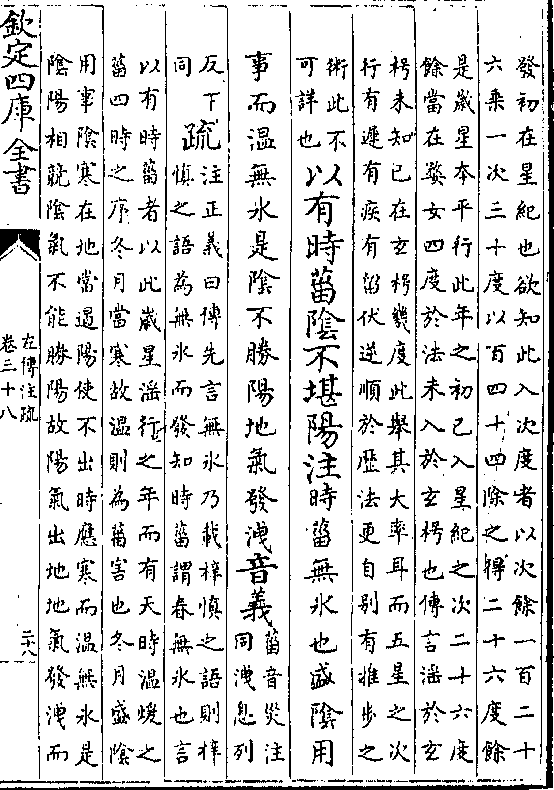 發初在星紀也欲知此入次度者以次餘一百二十
六乘一次三十度以百四十四除之得二十六度餘
是歲星本平行此年之初已入星紀之次二十六度
餘當在婺女四度於法未入於玄枵也傳言淫於玄
枵未知已在玄枵幾度此舉其大率耳而五星之次
行有遲有疾有留伏逆順於歴法更自别有推步之
術此不
可詳也
以有時菑陰不堪陽注時菑無氷也盛陰用
事而温無氷是陰不勝陽地氣發洩音義
菑音災注
同洩息列
反下
同
疏
注正義曰傳先言無氷乃載梓慎之語則梓
慎之語為無氷而發知時菑謂春無氷也言
以有時菑者以此歲星淫行之年而有天時温暖之
菑四時之序冬月當寒故温則為菑害也冬月盛陰
用事陰寒在地當遏陽使不出時應寒而温無氷是
陰陽相競陰氣不能勝陽故陽氣出地地氣發洩而
欽定四庫全書
左傳注疏
卷三十八